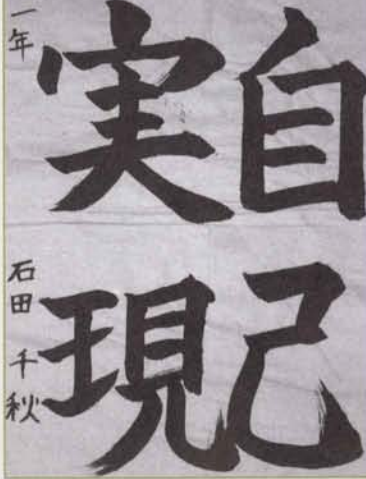 自己
実現
一年 石田 千秋